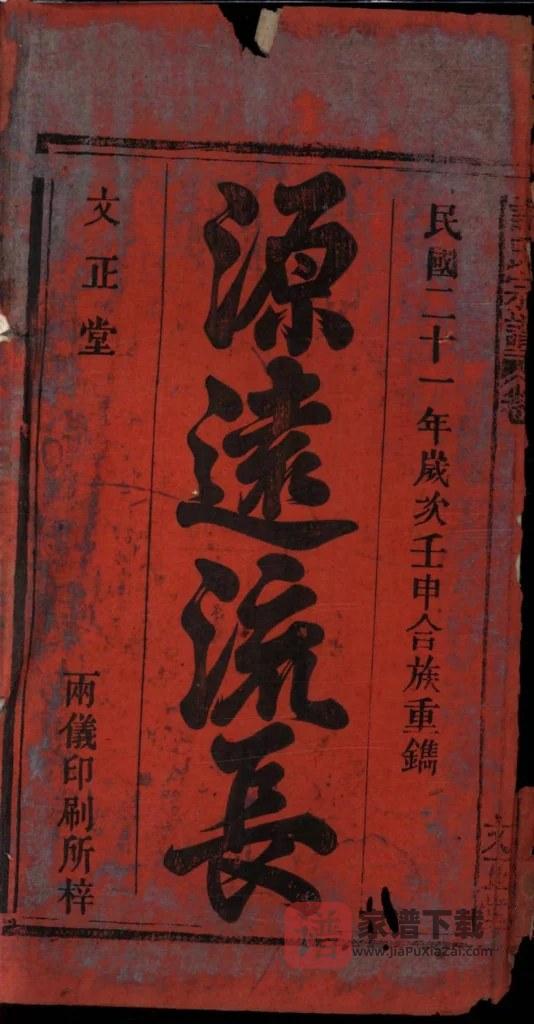 民國二十一年歲次壬申合族重鐫
源遠流長
文正堂
兩儀印刷所梓
家谱下载
www.jiaPuXiazai.com
谱